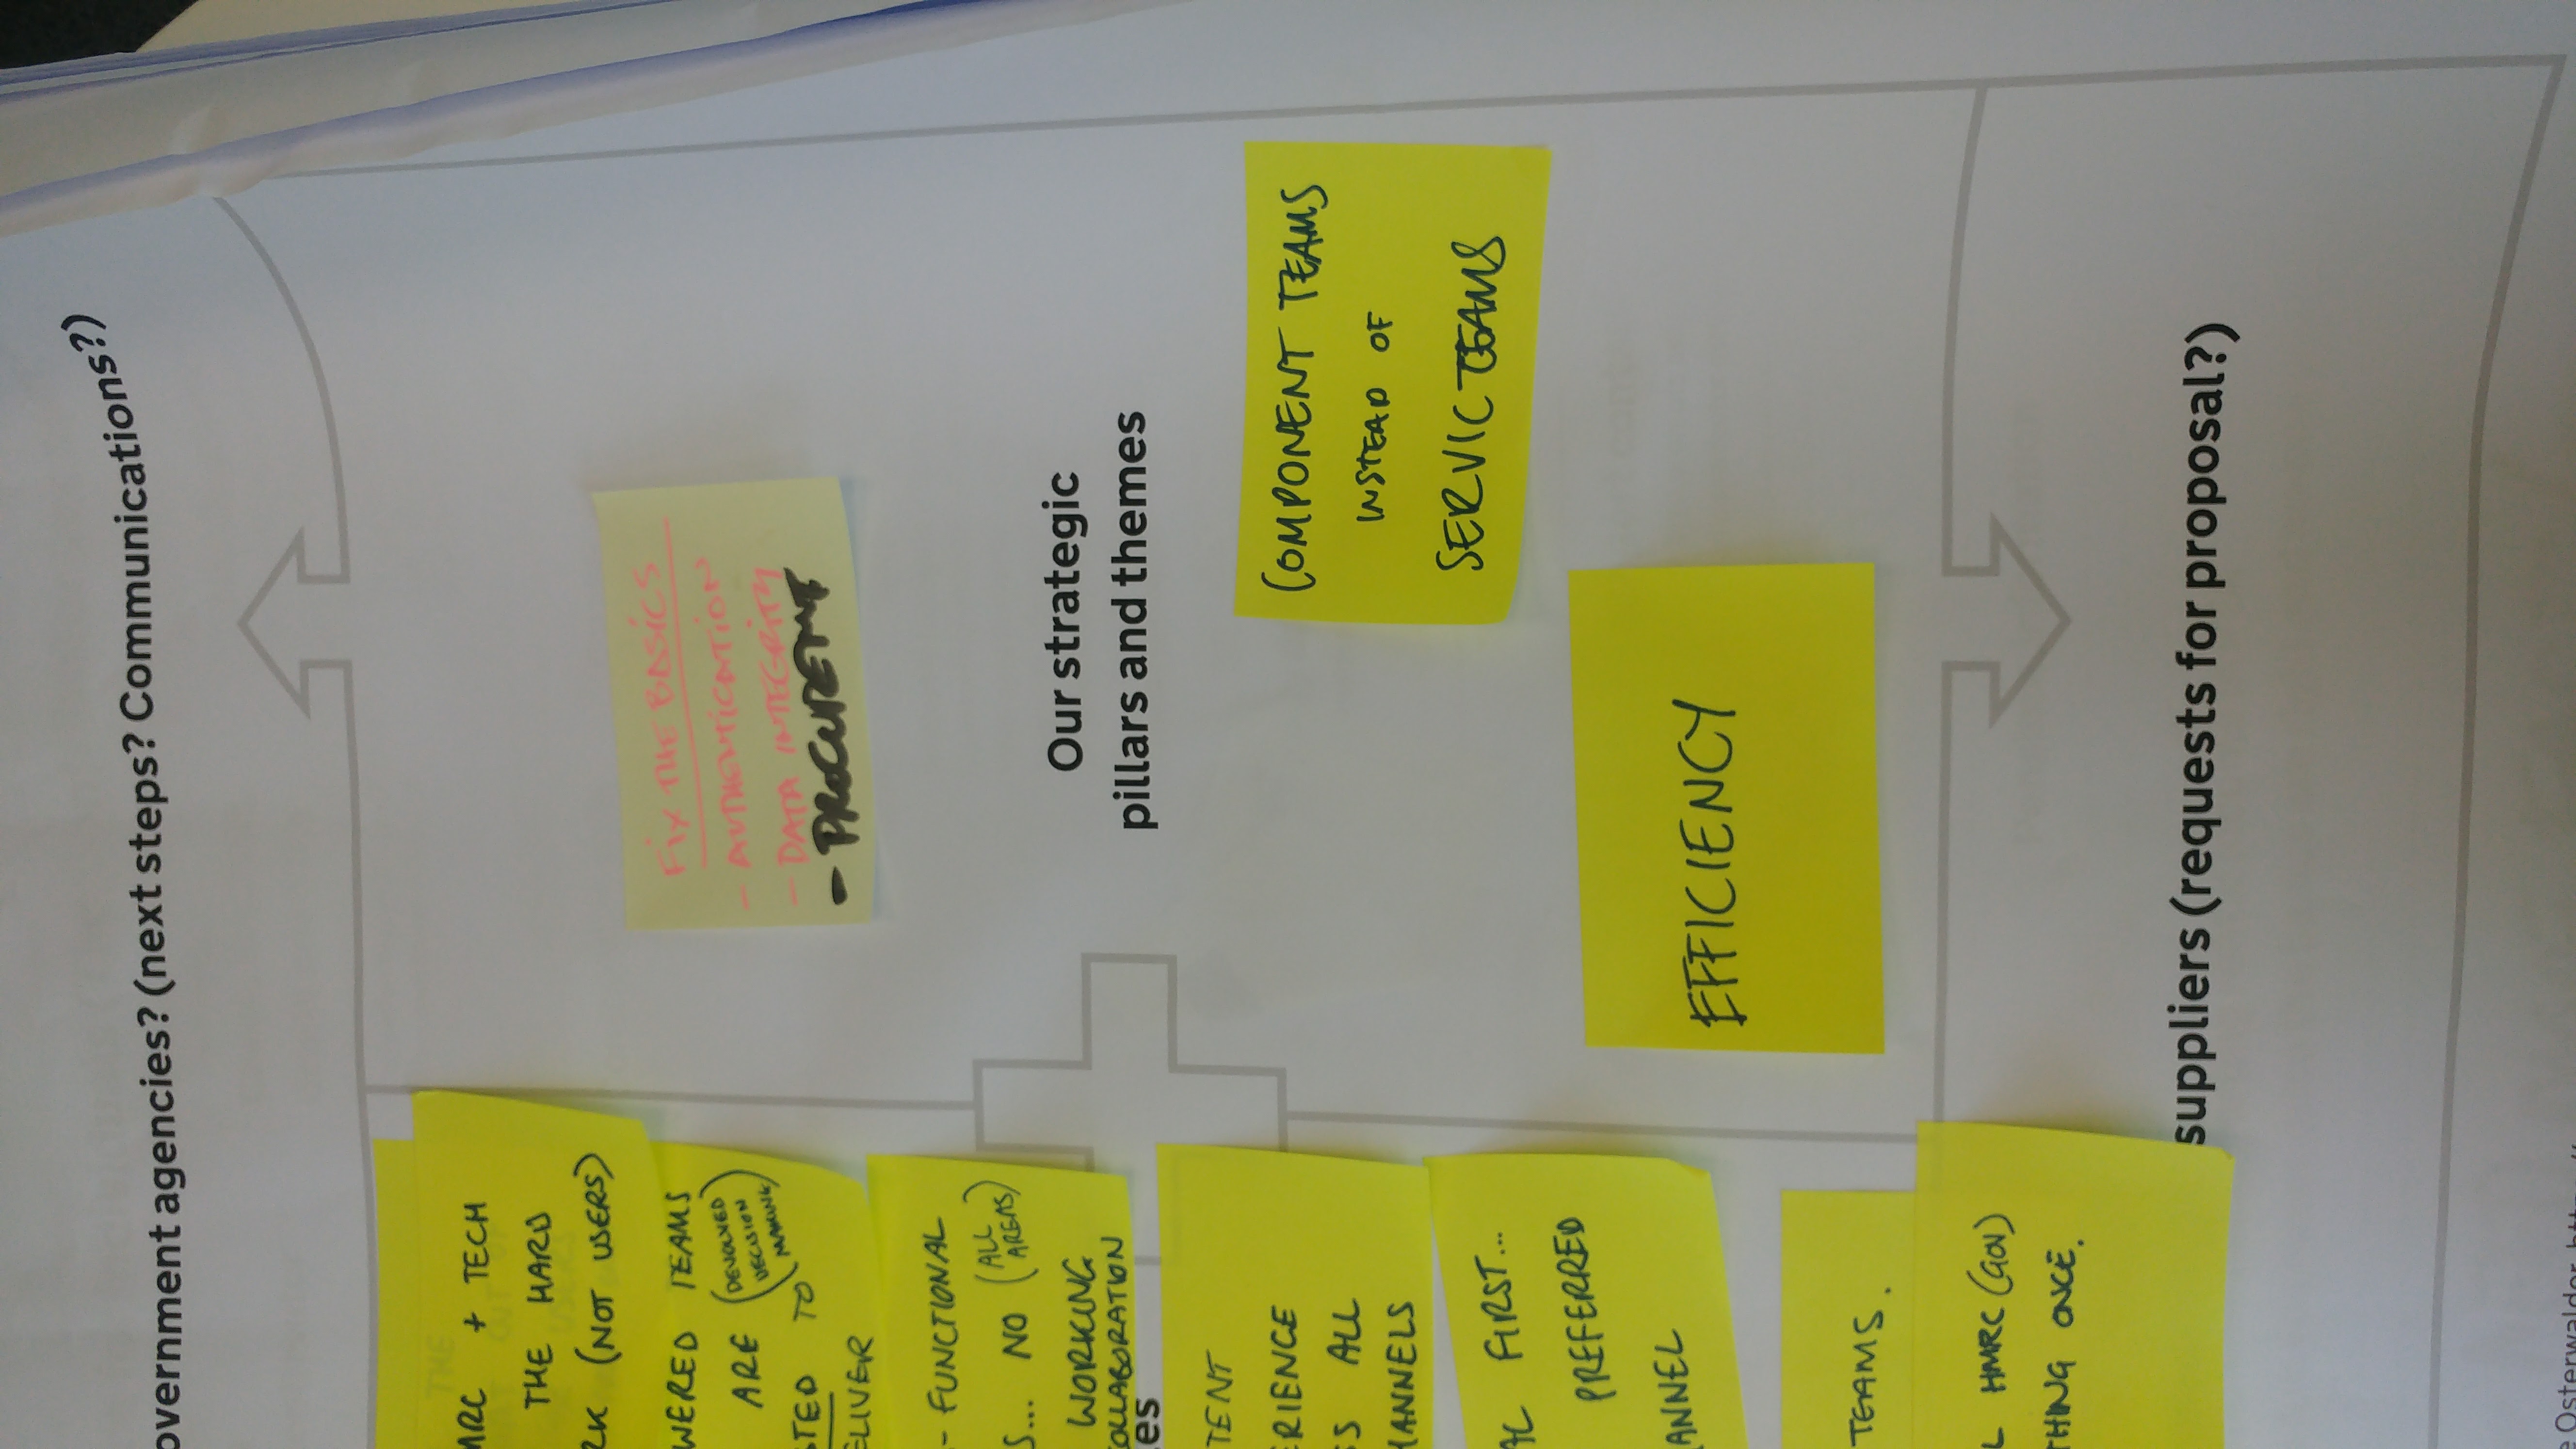 overnment agencies? (next steps? Communications?)
MRC + TECH
THE HARD
RK (NOT USERS)
WERED TEAMS
ARE (DEVOLVED
DECISION
MAKING)
STED TO
ELIVER
- FUNCTIONAL
S... NO (ALL
AREAS)
WORKING
COLLABORATION
es
TENT
ERIENCE
SS ALL
HANNELS
AL FIRST...
PREFERRED
ANNEL
TEAMS.
L HMRC (GOV)
THING ONCE.
FIX THE BASICS
- AUTHENTICATION
- DATA INTEGRITY
- PROCUREMT
Our strategic
pillars and themes
COMPONENT TEAMS
INSTEAD OF
SERVIC TEAMS
EFFICIENCY
suppliers (requests for proposal?)
e Osterwalder